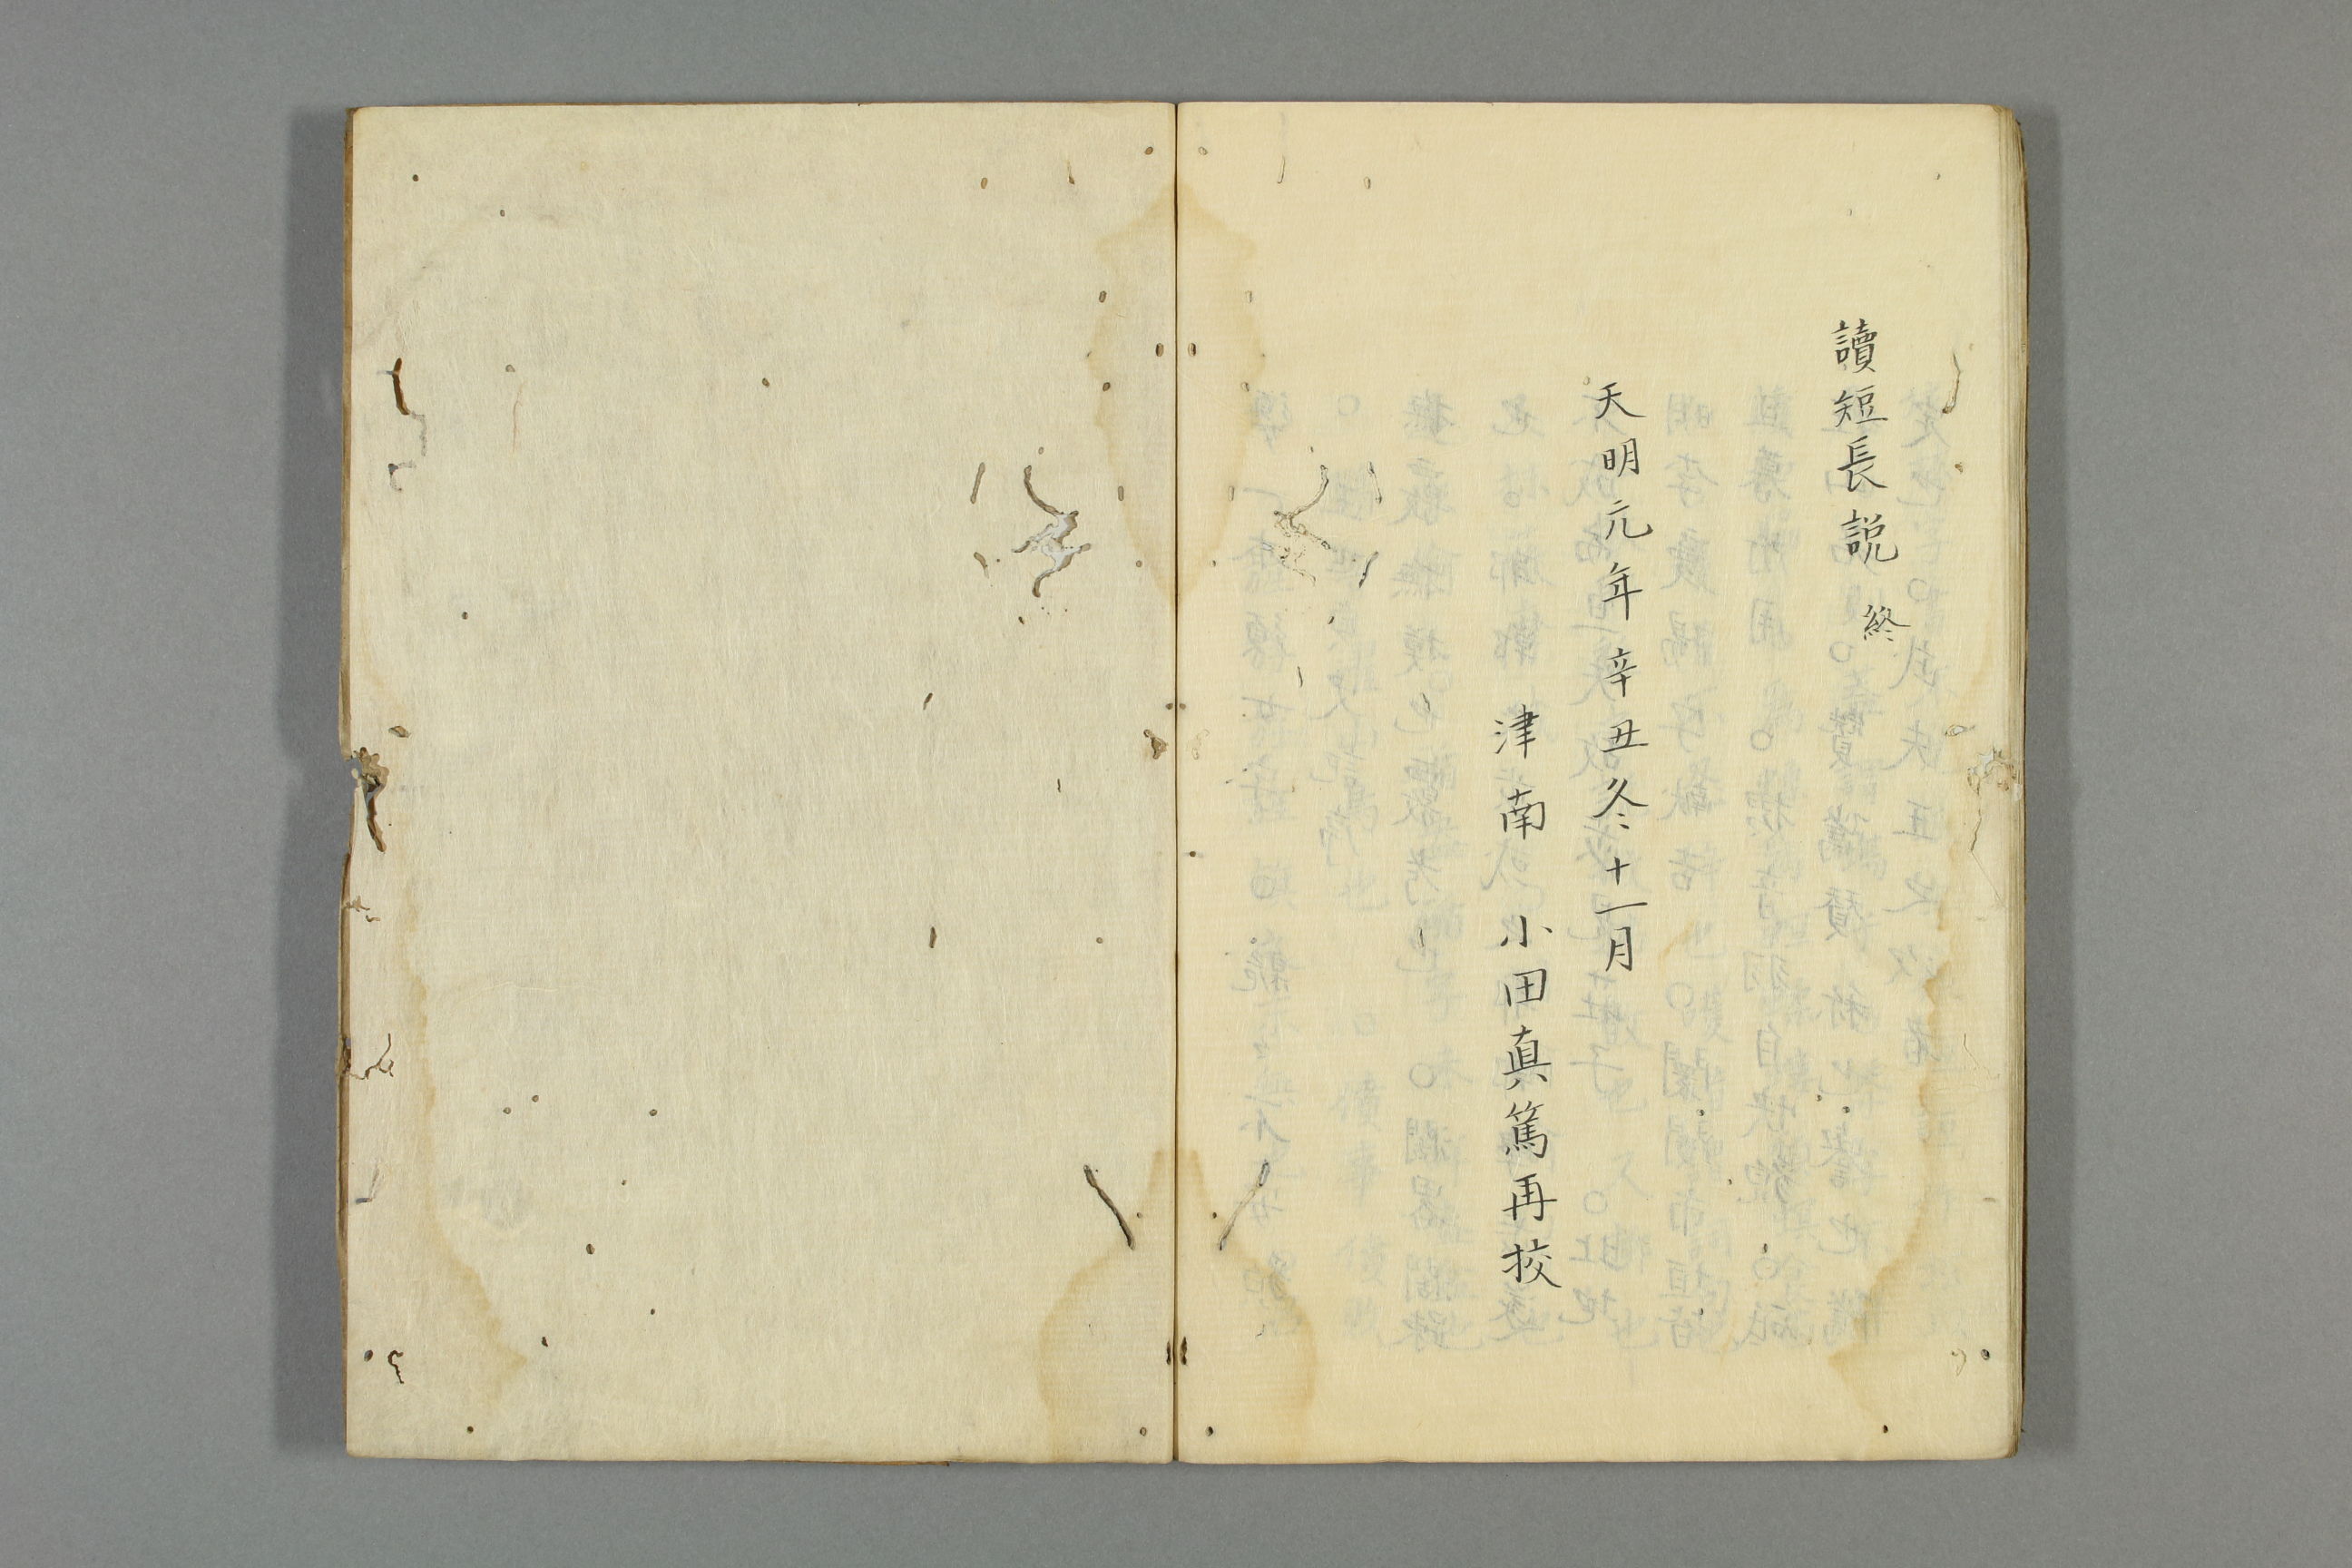 讀短長説 終
天明元年辛丑冬十一月
津南 小田真篤再挍